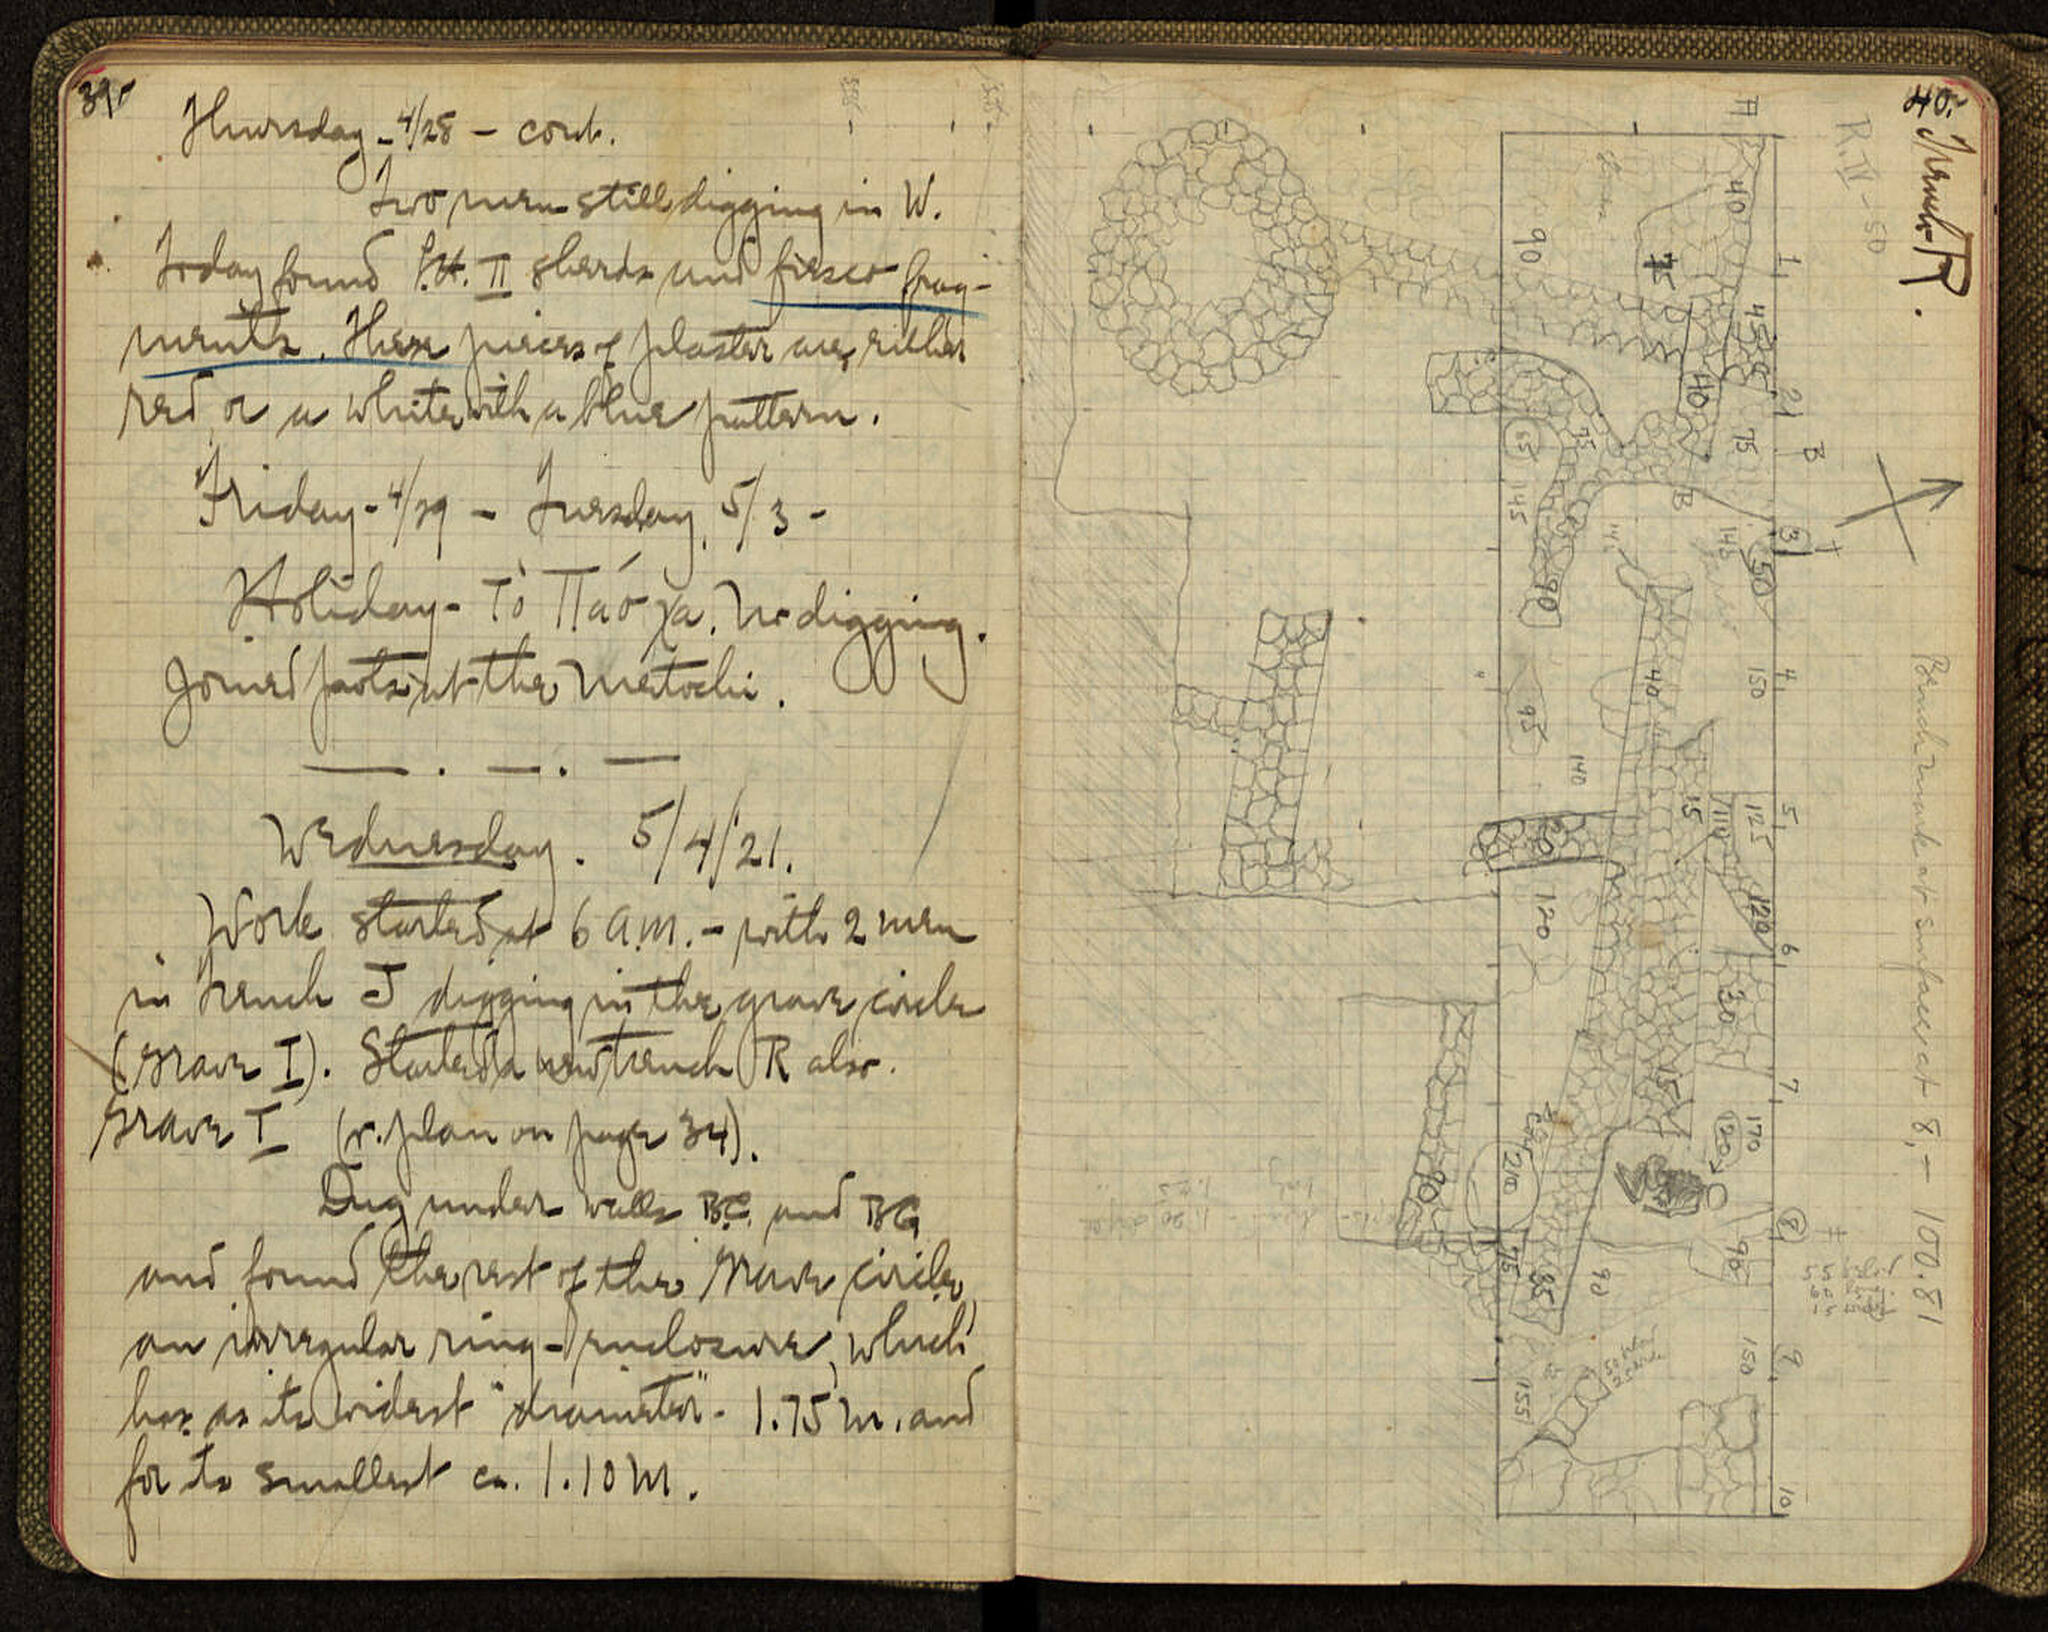 39.
Thursday - 4/28 - cont.
Two men still digging in W.
Today found L.H. II sherds and fresco frag-
ments. These pieces of plaster are either
red or a white with a blue pattern.
Friday - 4/29 - Tuesday, 5/3 -
Holiday - Τὸ Πάσχα. No digging.
Joined pots at the Metochi.
Wednesday. 5/4/'21.
Work started at 6 a.m. - with 2 men
in Trench J digging in the grave circle
(Grave I). Started a new trench R also.
Grave I (v. plan on page 34).
Dug under walls BC and BG
and found the rest of the Grave circle,
an irregular ring-enclosure, which
has as its widest "diameter" - 1.75 m. and
for its smallest ca. 1.10 m.
40.
Trench R.
R. IV - 50
Bench mark at surface at 8, - 100.81
1
2
3
4
5
6
7
8
9
10
B
B
40
45
75
90
40
75
75
65
145
90
145
50
150
40
95
140
15
110
125
120
20
120
30
15
170
120
210
90
75
85
90
90
150
155